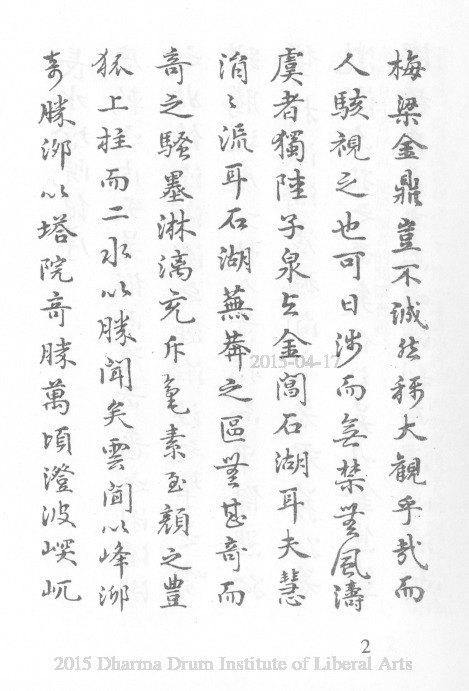 梅梁金鼎豈不誠然稱大觀乎哉而
人駭視之也可日涉而無禁無風濤
虞者獨陸子泉與金閶石湖耳夫慧
涓〻流耳石湖蕪莽之區無甚奇而
奇之騷墨淋漓充斥毫素至顏之豐
猴上柱而二水以勝聞矣雲間以峰泖
奇勝泖以塔院奇勝萬頃澄波嵲屼
2
2015-04-17
2015 Dharma Drum Institute of Liberal Arts